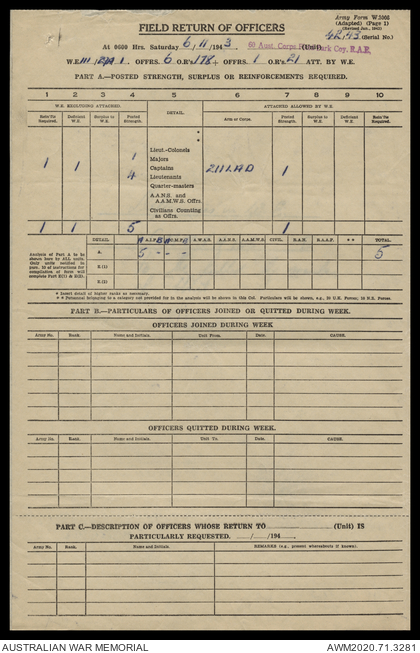 Army Form W.3008
(Adapted) (Page 1)
FIELD RETURN OF OFFICERS
42/43 (Serial No.)
At 0600 Hrs. Saturday 6/11/1943. 60 Aust. Corps Park Coy. R.A.E. (Unit)
W.E. OFFRS. 6 O.R's 178 + OFFRS. 1 O.R's 21 ATT. BY W.E.
PART A.—POSTED STRENGTH, SURPLUS OR REINFORCEMENTS REQUIRED.
1 2 3 4 5 6 7 8 9 10
W.E. EXCLUDING ATTACHED. DETAIL ATTACHED ALLOWED BY W.E.
Rein'fts Required. Deficient W.E. Surplus to W.E. Posted Strength. Arm or Corps. Posted Strength. Surplus to W.E. Deficient W.E. Rein'fts Required.
Lieut.-Colonels
1 1 1 Majors
Captains 2/1 LAD 1
4 Lieutenants
Quarter-masters
A.A.N.S. and
A.A.M.W.S. Offrs.
Civilians Counting
as Offrs.
1 1 5 1
Analysis of Part A to be
shown here by ALL units.
Only units notified in
para. 10 of instructions for
compilation of form will
complete Part E(1) & E(2).
DETAIL A.I.F. A.M.F. A.W.A.S. A.A.N.S. A.A.M.W.S. CIVIL. R.A.N. R.A.A.F. * * TOTAL
A. 5 - - - 5
E (1)
E (2)
* Insert detail of higher ranks as necessary.
* * Personnel belonging to a category not provided for in the analysis will be shown in this Col. Particulars will be shown, e.g., 20 U.K. Forces; 10 N.E. Forces.
PART B.—PARTICULARS OF OFFICERS JOINED OR QUITTED DURING WEEK.
OFFICERS JOINED DURING WEEK
Army No. Rank. Name and Initials. Unit From. Date. CAUSE.
OFFICERS QUITTED DURING WEEK.
Army No. Rank. Name and Initials. Unit To. Date. CAUSE.
PART C.—DESCRIPTION OF OFFICERS WHOSE RETURN TO (Unit) IS
PARTICULARLY REQUESTED. / /194
Army No. Rank. Name and Initials. REMARKS (e.g., present whereabouts if known).
AUSTRALIAN WAR MEMORIAL AWM2020.71.3281